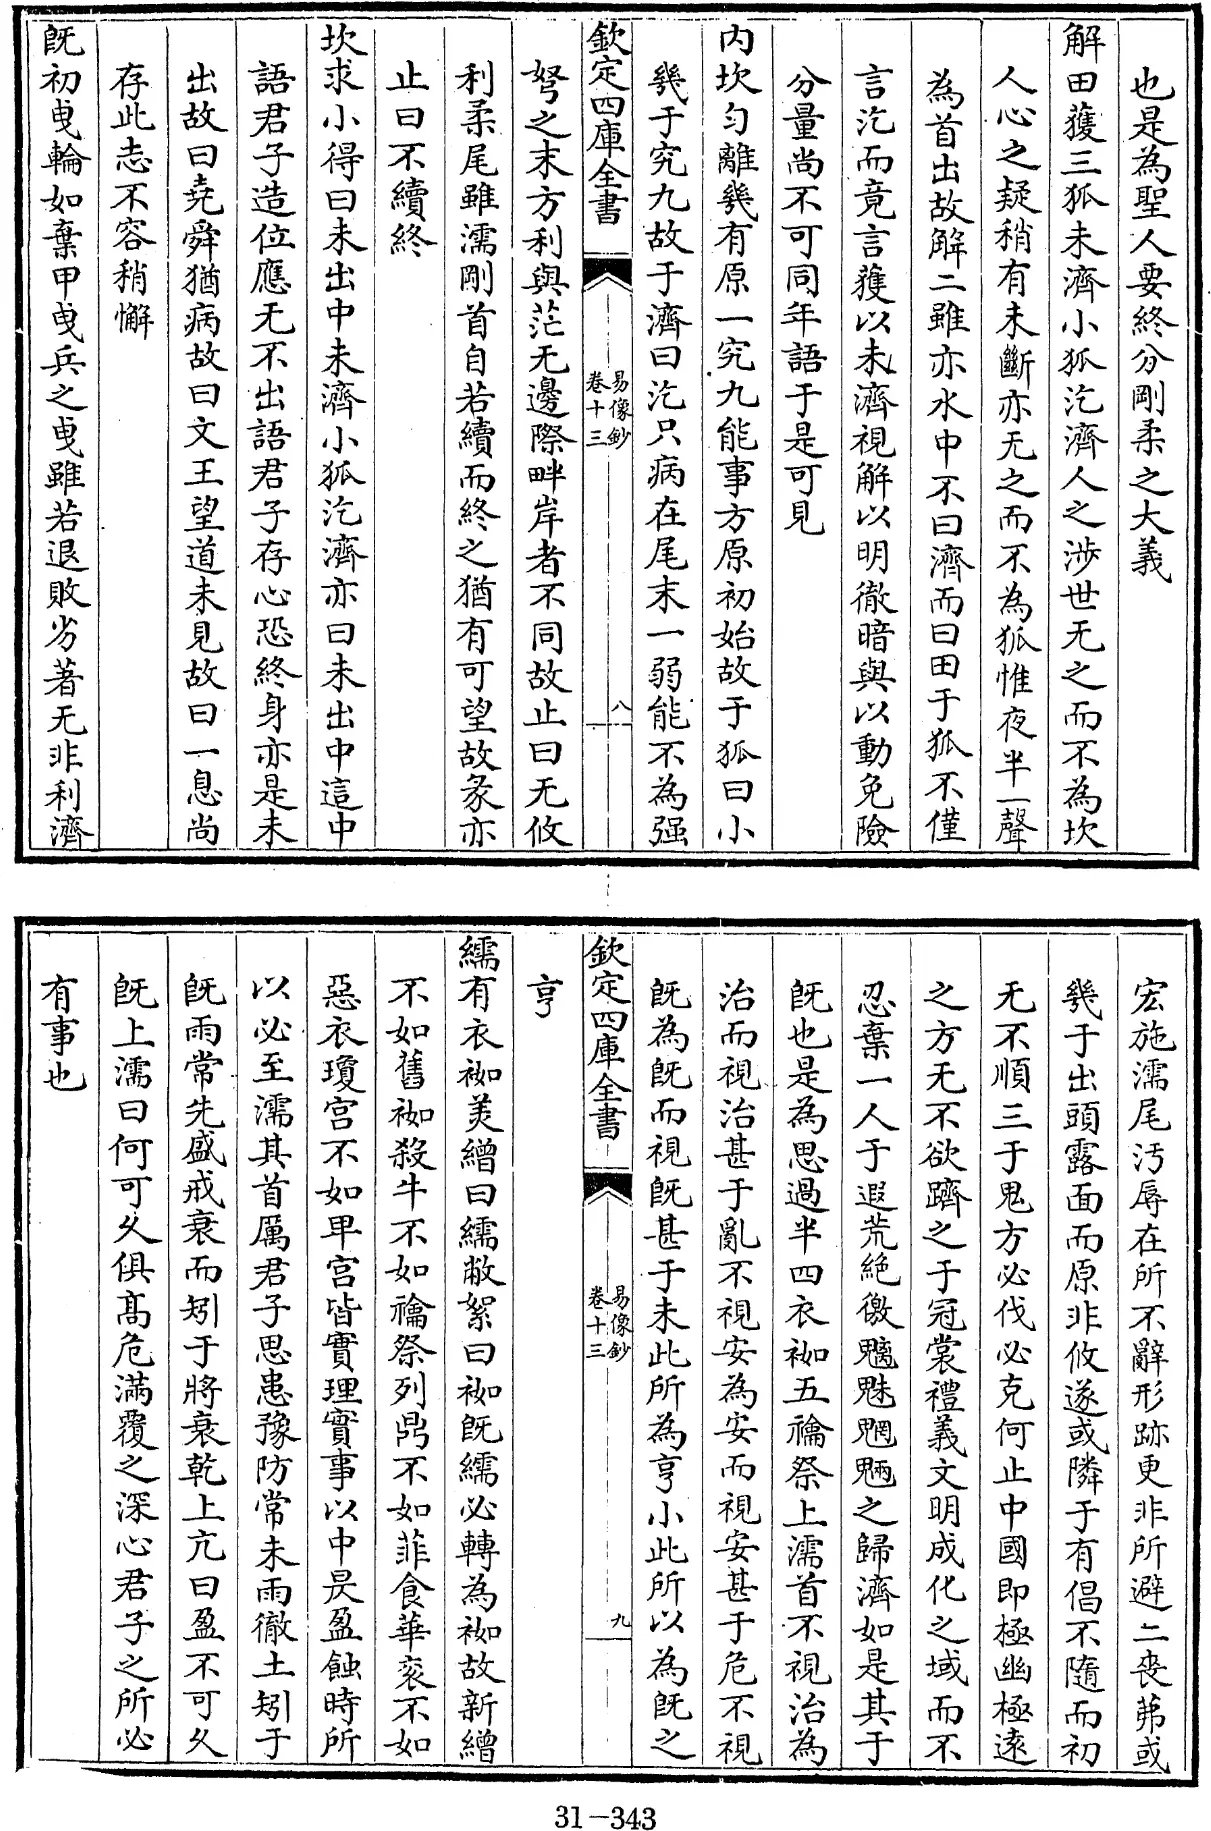 也是為聖人要終分剛柔之大義
解田獲三狐未濟小狐汔濟人之涉世无之而不為坎
人心之疑稍有未斷亦无之而不為狐惟夜半一聲
為首出故解二雖亦水中不曰濟而曰田于狐不僅
言汔而竟言獲以未濟視解以明徹暗與以動免險
分量尚不可同年語于是可見
内坎匀離㡬有原一究九能事方原初始故于狐曰小
㡬于究九故于濟曰汔只病在尾末一弱能不為强
欽定四庫全書
易像鈔
卷十三
八
弩之末方利與茫无邊際畔岸者不同故止曰无攸
利柔尾雖濡剛首自若續而終之猶有可望故彖亦
止曰不續終
坎求小得曰未出中未濟小狐汔濟亦曰未出中這中
語君子造位應无不出語君子存心恐終身亦是未
出故曰堯舜猶病故曰文王望道未見故曰一息尚
存此志不容稍懈
旣初曵輪如棄甲曵兵之曵雖若退敗劣著无非利濟
宏施濡尾汚辱在所不辭形跡更非所避二喪茀或
㡬于出頭露面而原非攸遂或隣于有倡不隨而初
无不順三于鬼方必伐必克何止中國即極幽極逺
之方无不欲躋之于冠裳禮義文明成化之域而不
忍棄一人于遐荒絶徼魑魅魍魎之歸濟如是其于
旣也是為思過半四衣袽五禴祭上濡首不視治為
治而視治甚于亂不視安為安而視安甚于危不視
旣為旣而視旣甚于未此所為亨小此所以為旣之
欽定四庫全書
易像鈔
卷十三
九
亨
繻有衣袽美繒曰繻敝絮曰袽旣繻必轉為袽故新繒
不如舊袽殺牛不如禴祭列鼎不如菲食華衮不如
惡衣瓊宫不如卑宫皆實理實事以中昃盈蝕時所
以必至濡其首厲君子思患豫防常未雨徹土矧于
旣雨常先盛戒衰而矧于將衰乾上亢曰盈不可久
旣上濡曰何可久俱髙危滿覆之深心君子之所必
有事也
31-343